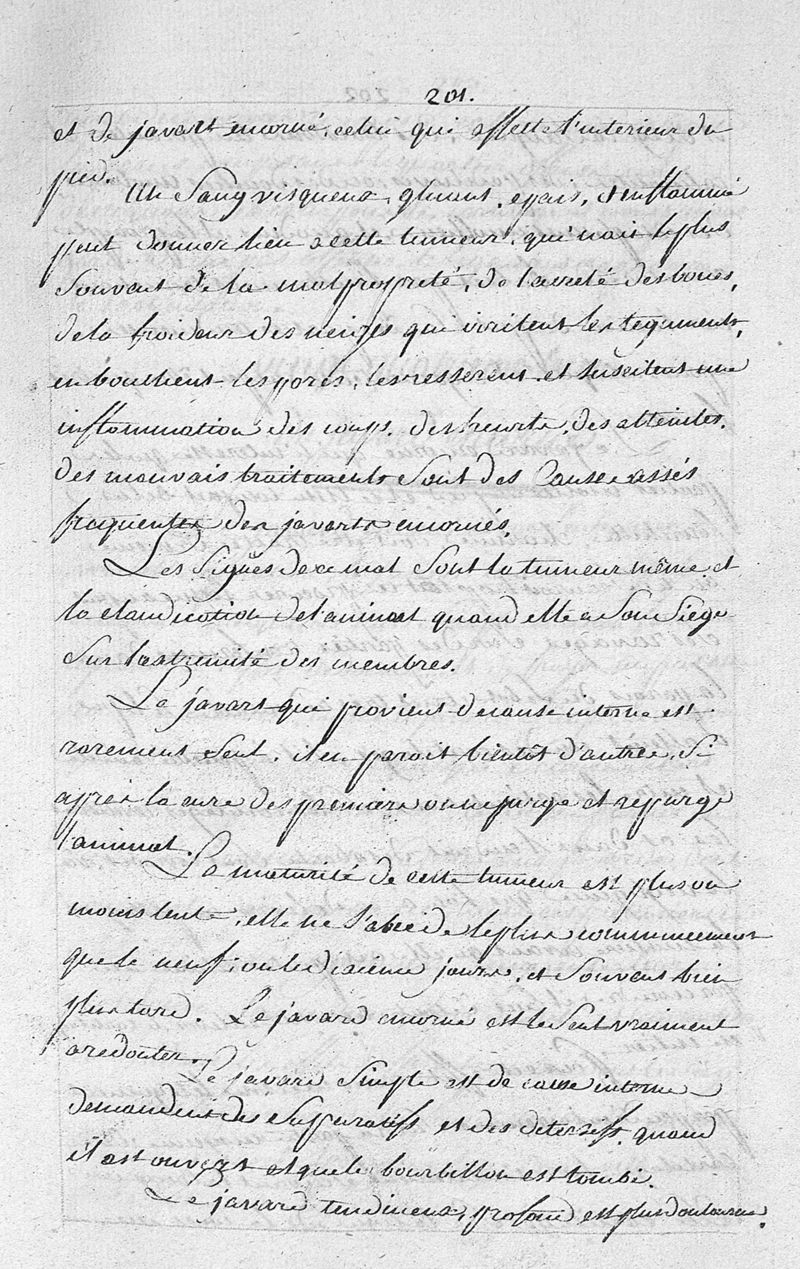 201.
et de javart encorné, celui qui affette l'interieur du
pied.
Un Sang visqueux, gluant, epais, et enflammé
peut donner lieu a cette tumeur, qui nait le plus
Souvent de la malpropreté, de l'acreté des boues,
de la froideur des neiges qui irritent les teguments,
en bouchent les pores, les resserent, et Suscitent une
inflammation des coups, des heurts, des atteintes,
des mauvais traitements Sont des Causes assés
frequentes des javarts encornés.
Les Signes de ce mal Sont la tumeur même et
la claudication de l'animal quand elle a Son Siege
Sur l'extremité des membres.
Le javart qui provient de cause interne est
rarement Seul, il en paroit bientôt d'autres, Si
après la cure des premiers on ne purge et repurge
l'animal.
La maturité de cette tumeur est plus ou
moins lente, elle ne s'abcède le plus communement
que le neuf, ou le dixième jours, et Souvent bien
plus tard. Le javard encorné est le Seul vraiment
a redouter.
Le javard Simple est de cause interne
demandent des Suppuratifs et des detersifs, quand
il est ouvert et que le bourbillon est tombé.
Le javard tendineux, profond est plus douloureux,